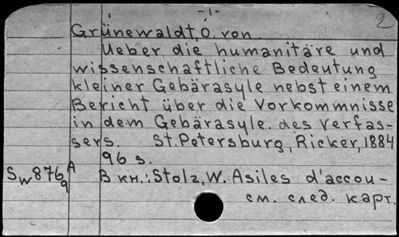 -1-
2
Grünewaldt, O. von
Ueber die humanitäre und
wissenschaftliche Bedeutung
kleiner Gebärasyle nebst einem
Bericht über die Vorkommnisse
in dem Gebärasyle. des Verfas-
sers. St. Petersburg, Ricker, 1884
96 s.
Sw 876 A/9 В кн.: Stolz, W. Asiles d'accou-
см. след. карт.